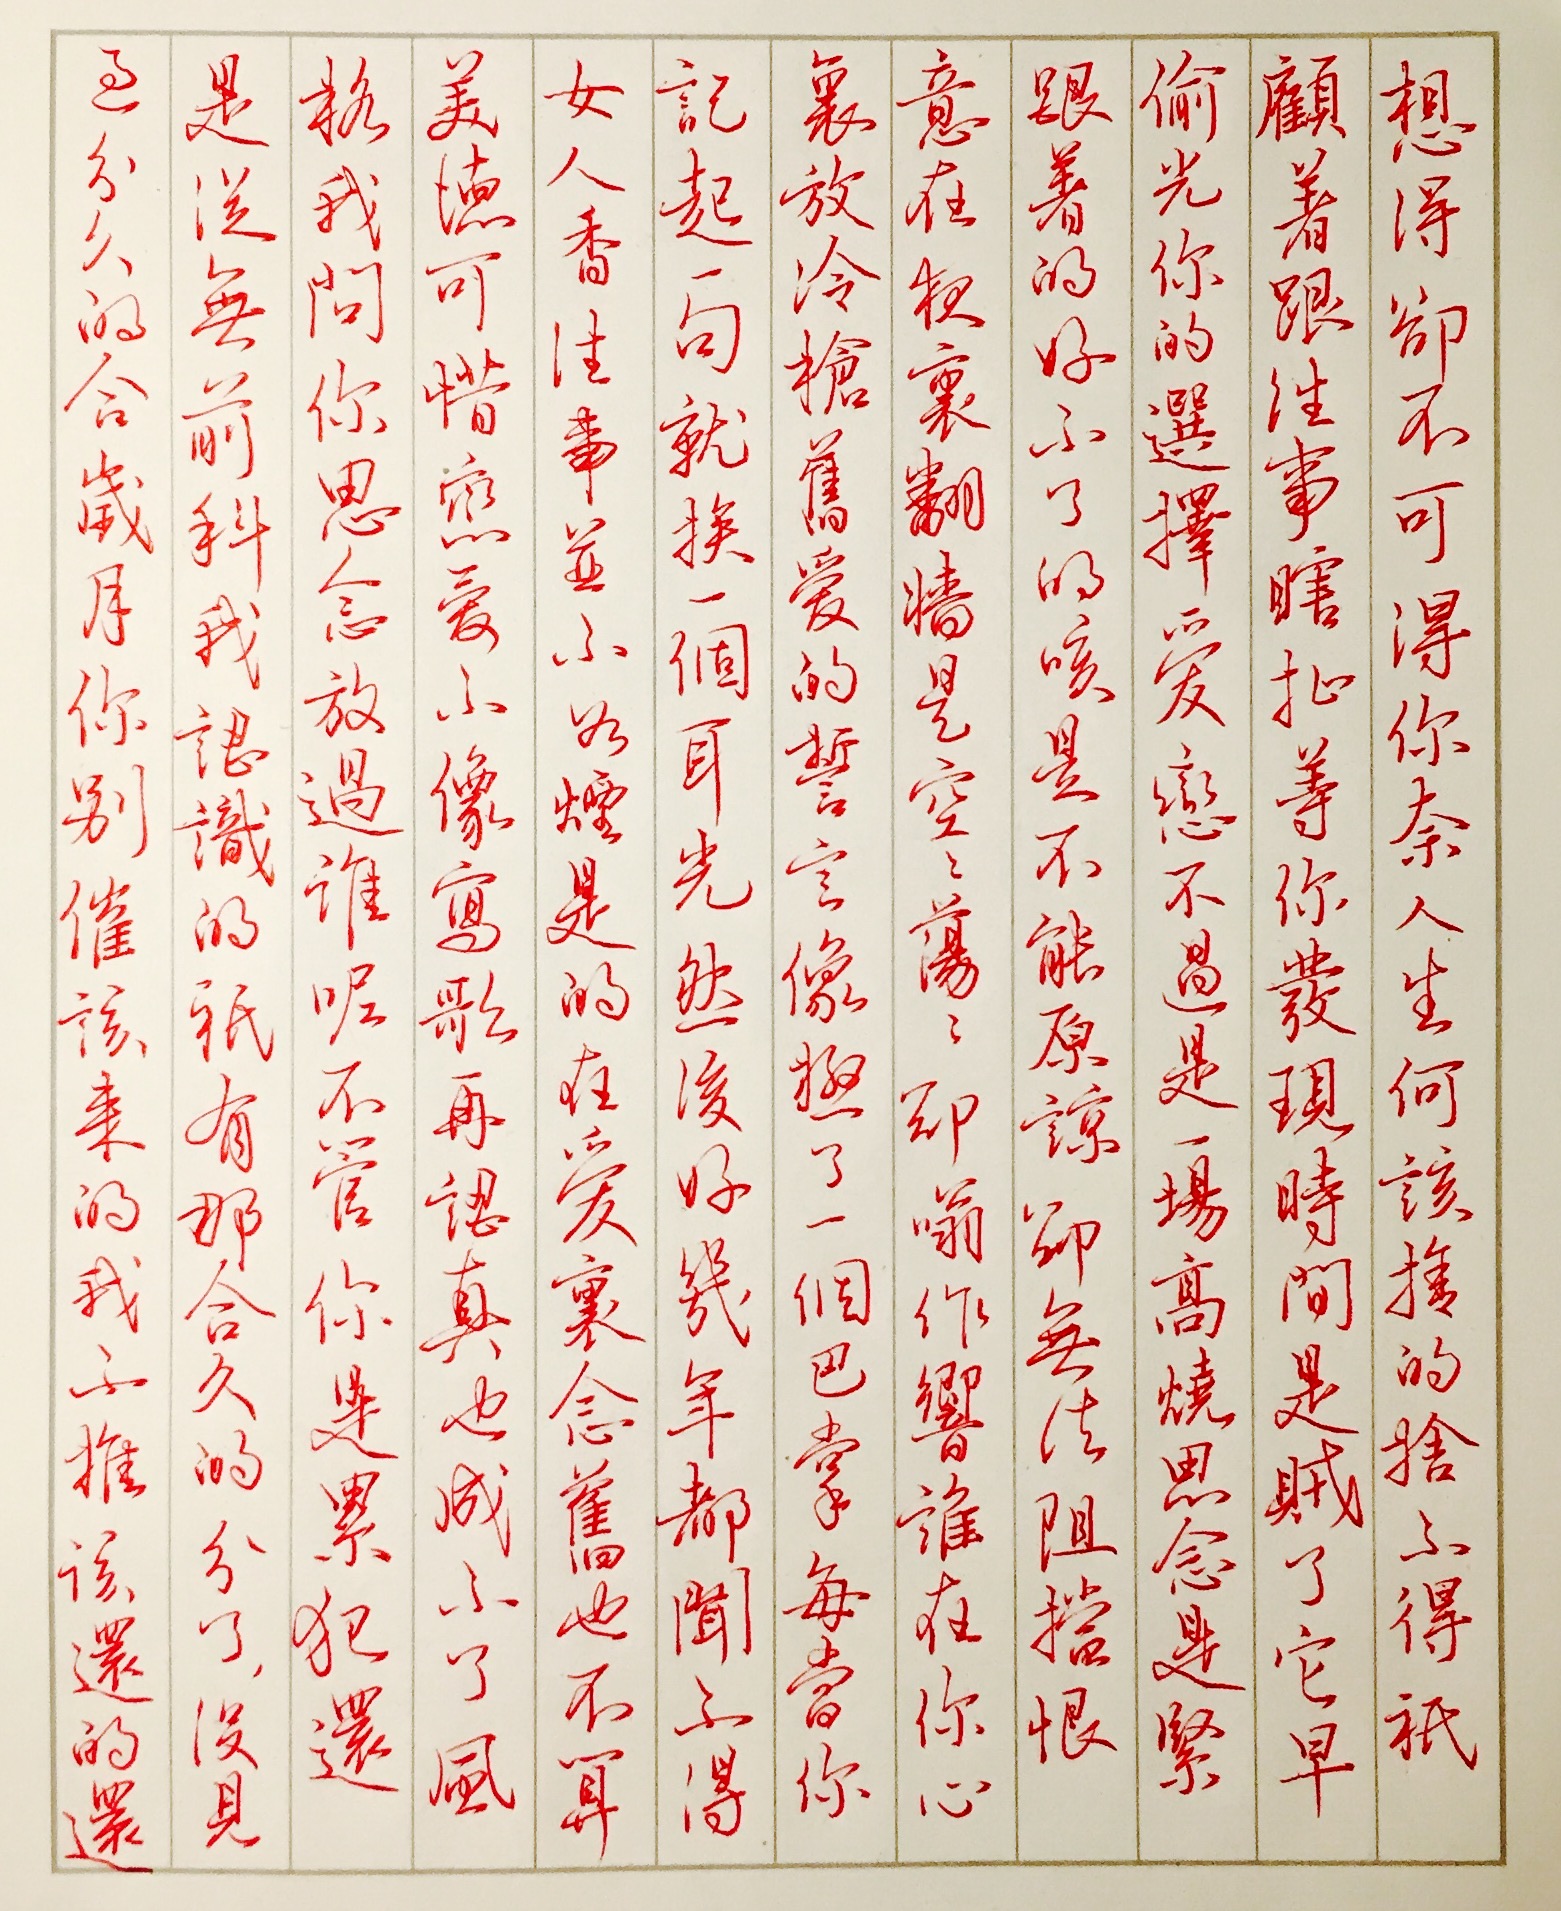 想得卻不可得你奈人生何該捨的捨不得祇
顧著跟往事瞎扯等你發現時間是賊了它早
偷光你的選擇愛戀不過是一場高燒思念是緊
跟著的好不了的咳是不能原諒卻無法阻擋恨
意在夜裏翻牆是空空蕩蕩卻嗡嗡作響誰在你心
裏放冷槍舊愛的誓言像極了一個巴掌每當你
記起一句就挨一個耳光然後好幾年都聞不得
女人香往事並不如煙是的在愛裏念舊也不算
美德可惜戀愛不像寫歌再認真也成不了風
格我問你思念放過誰呢不管你是累犯還
是從無前科我認識的祇有那合久的分了沒見
過分久的合歲月你別催該來的我不推該還的還